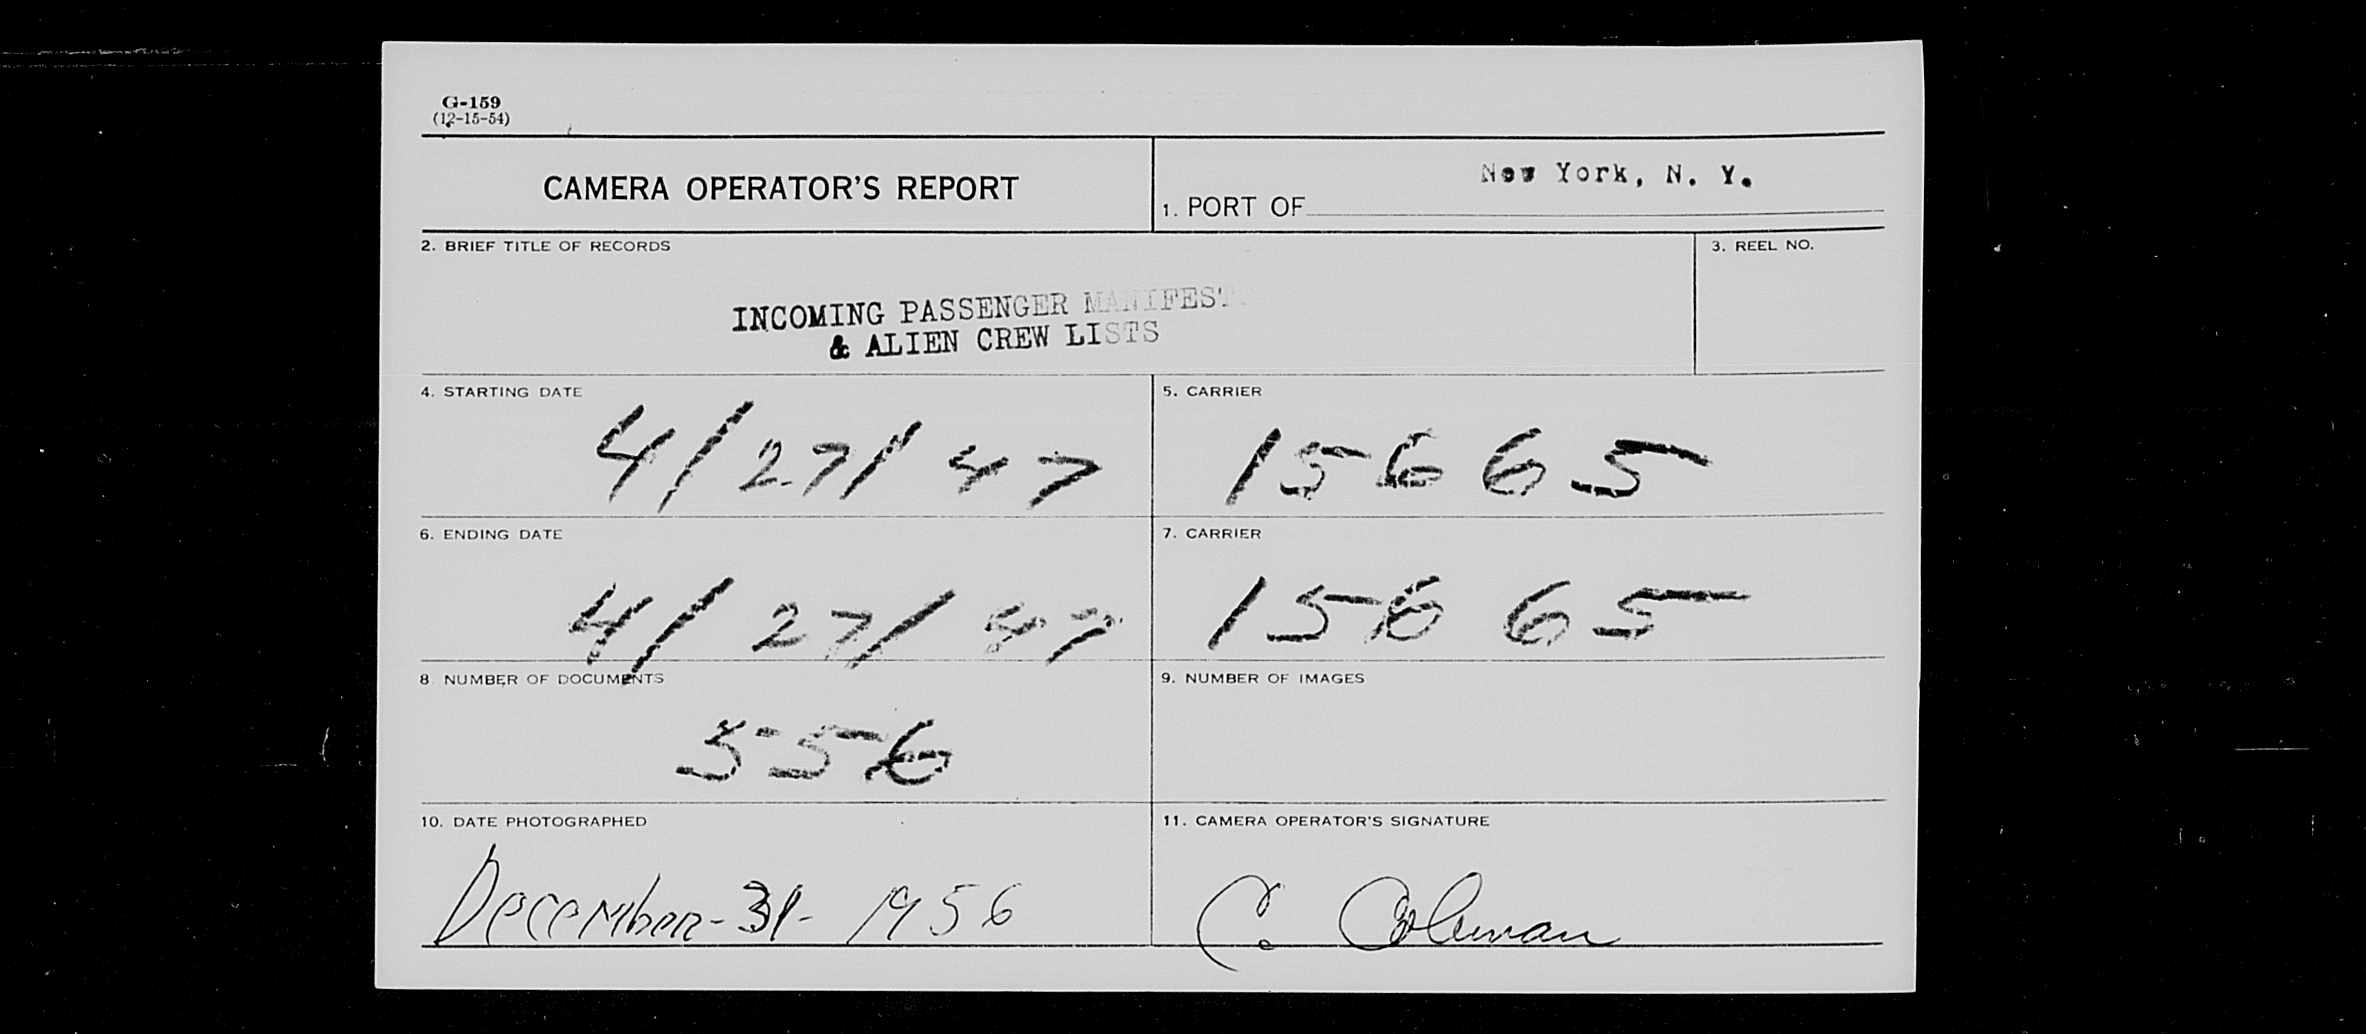 G-159
(12-15-54)
CAMERA OPERATOR'S REPORT
New York, N. Y.
1. PORT OF
2. BRIEF TITLE OF RECORDS
3. REEL NO.
INCOMING PASSENGER MANIFEST
& ALIEN CREW LISTS
4. STARTING DATE
4/27/47
5. CARRIER
15665
6. ENDING DATE
4/27/47
7. CARRIER
15665
8 NUMBER OF DOCUMENTS
556
9. NUMBER OF IMAGES
10. DATE PHOTOGRAPHED
December-31-1956
11. CAMERA OPERATOR'S SIGNATURE
C. Coleman